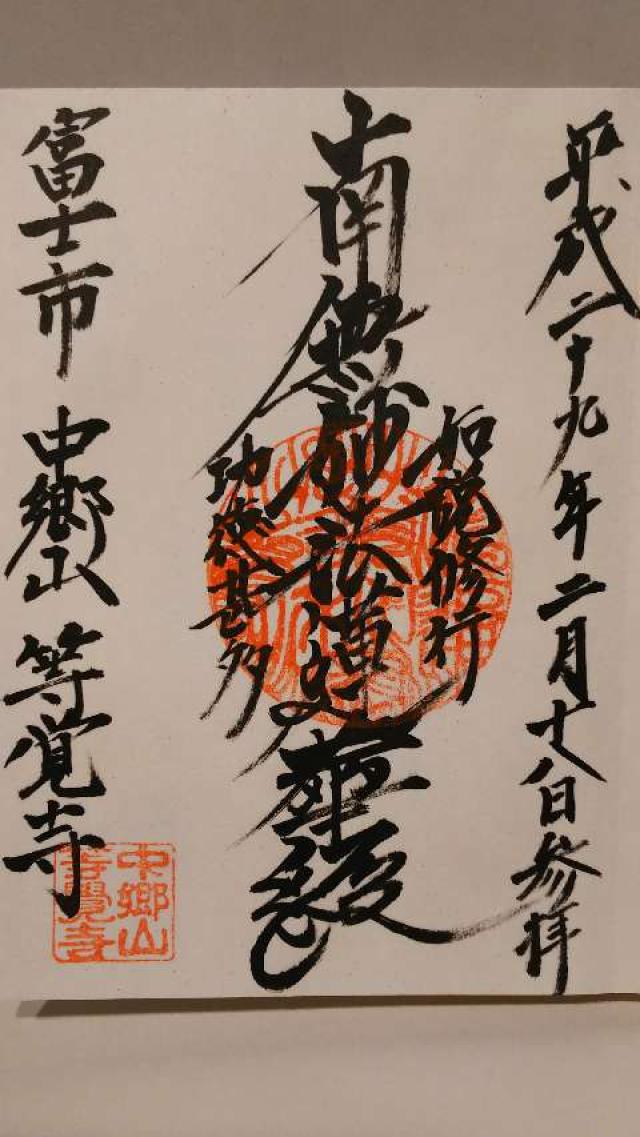 平成二十九年二月十八日参拝
如説修行
南無妙法
功徳甚多
富士市 中郷山 等覚寺
中郷山
等覺寺